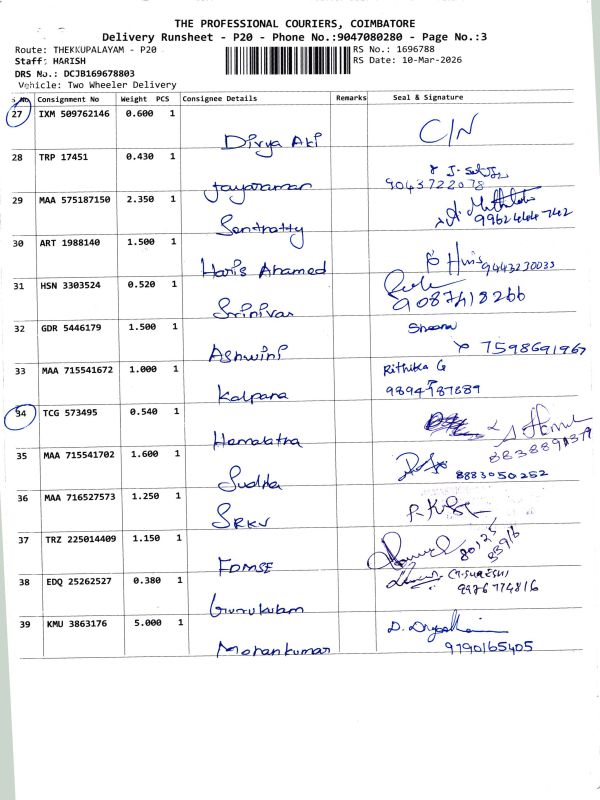 THE PROFESSIONAL COURIERS, COIMBATORE
Delivery Runsheet - P20 - Phone No.:9047080280 - Page No.:3
Route: THEKKUPALAYAM - P20
RS No.: 1696788
Staff: HARISH
RS Date: 10-Mar-2026
DRS No.: DCJB169678803
Vehicle: Two Wheeler Delivery
S.No Consignment No Weight PCS Consignee Details Remarks Seal & Signature
27 IXM 509762146 0.600 1
Divya Aki C/N
28 TRP 17451 0.430 1
Jayaraman 9043722078
29 MAA 575187150 2.350 1
30 ART 1988140 1.500 1
Haris Ahamed 9443230033
31 HSN 3303524 0.520 1
Srinivas 9087418266
32 GDR 5446179 1.500 1
Ashwini 7598691967
33 MAA 715541672 1.000 1 Rithika G
Kalpana
34 TCG 573495 0.540 1
Hemalatha
35 MAA 715541702 1.600 1
Sudha 8883050252
36 MAA 716527573 1.250 1
SRKV
37 TRZ 225014409 1.150 1
38 EDQ 25262527 0.380 1 (T.SURESH)
Gurukulam 9976774816
39 KMU 3863176 5.000 1
Mohankumar 9790165405